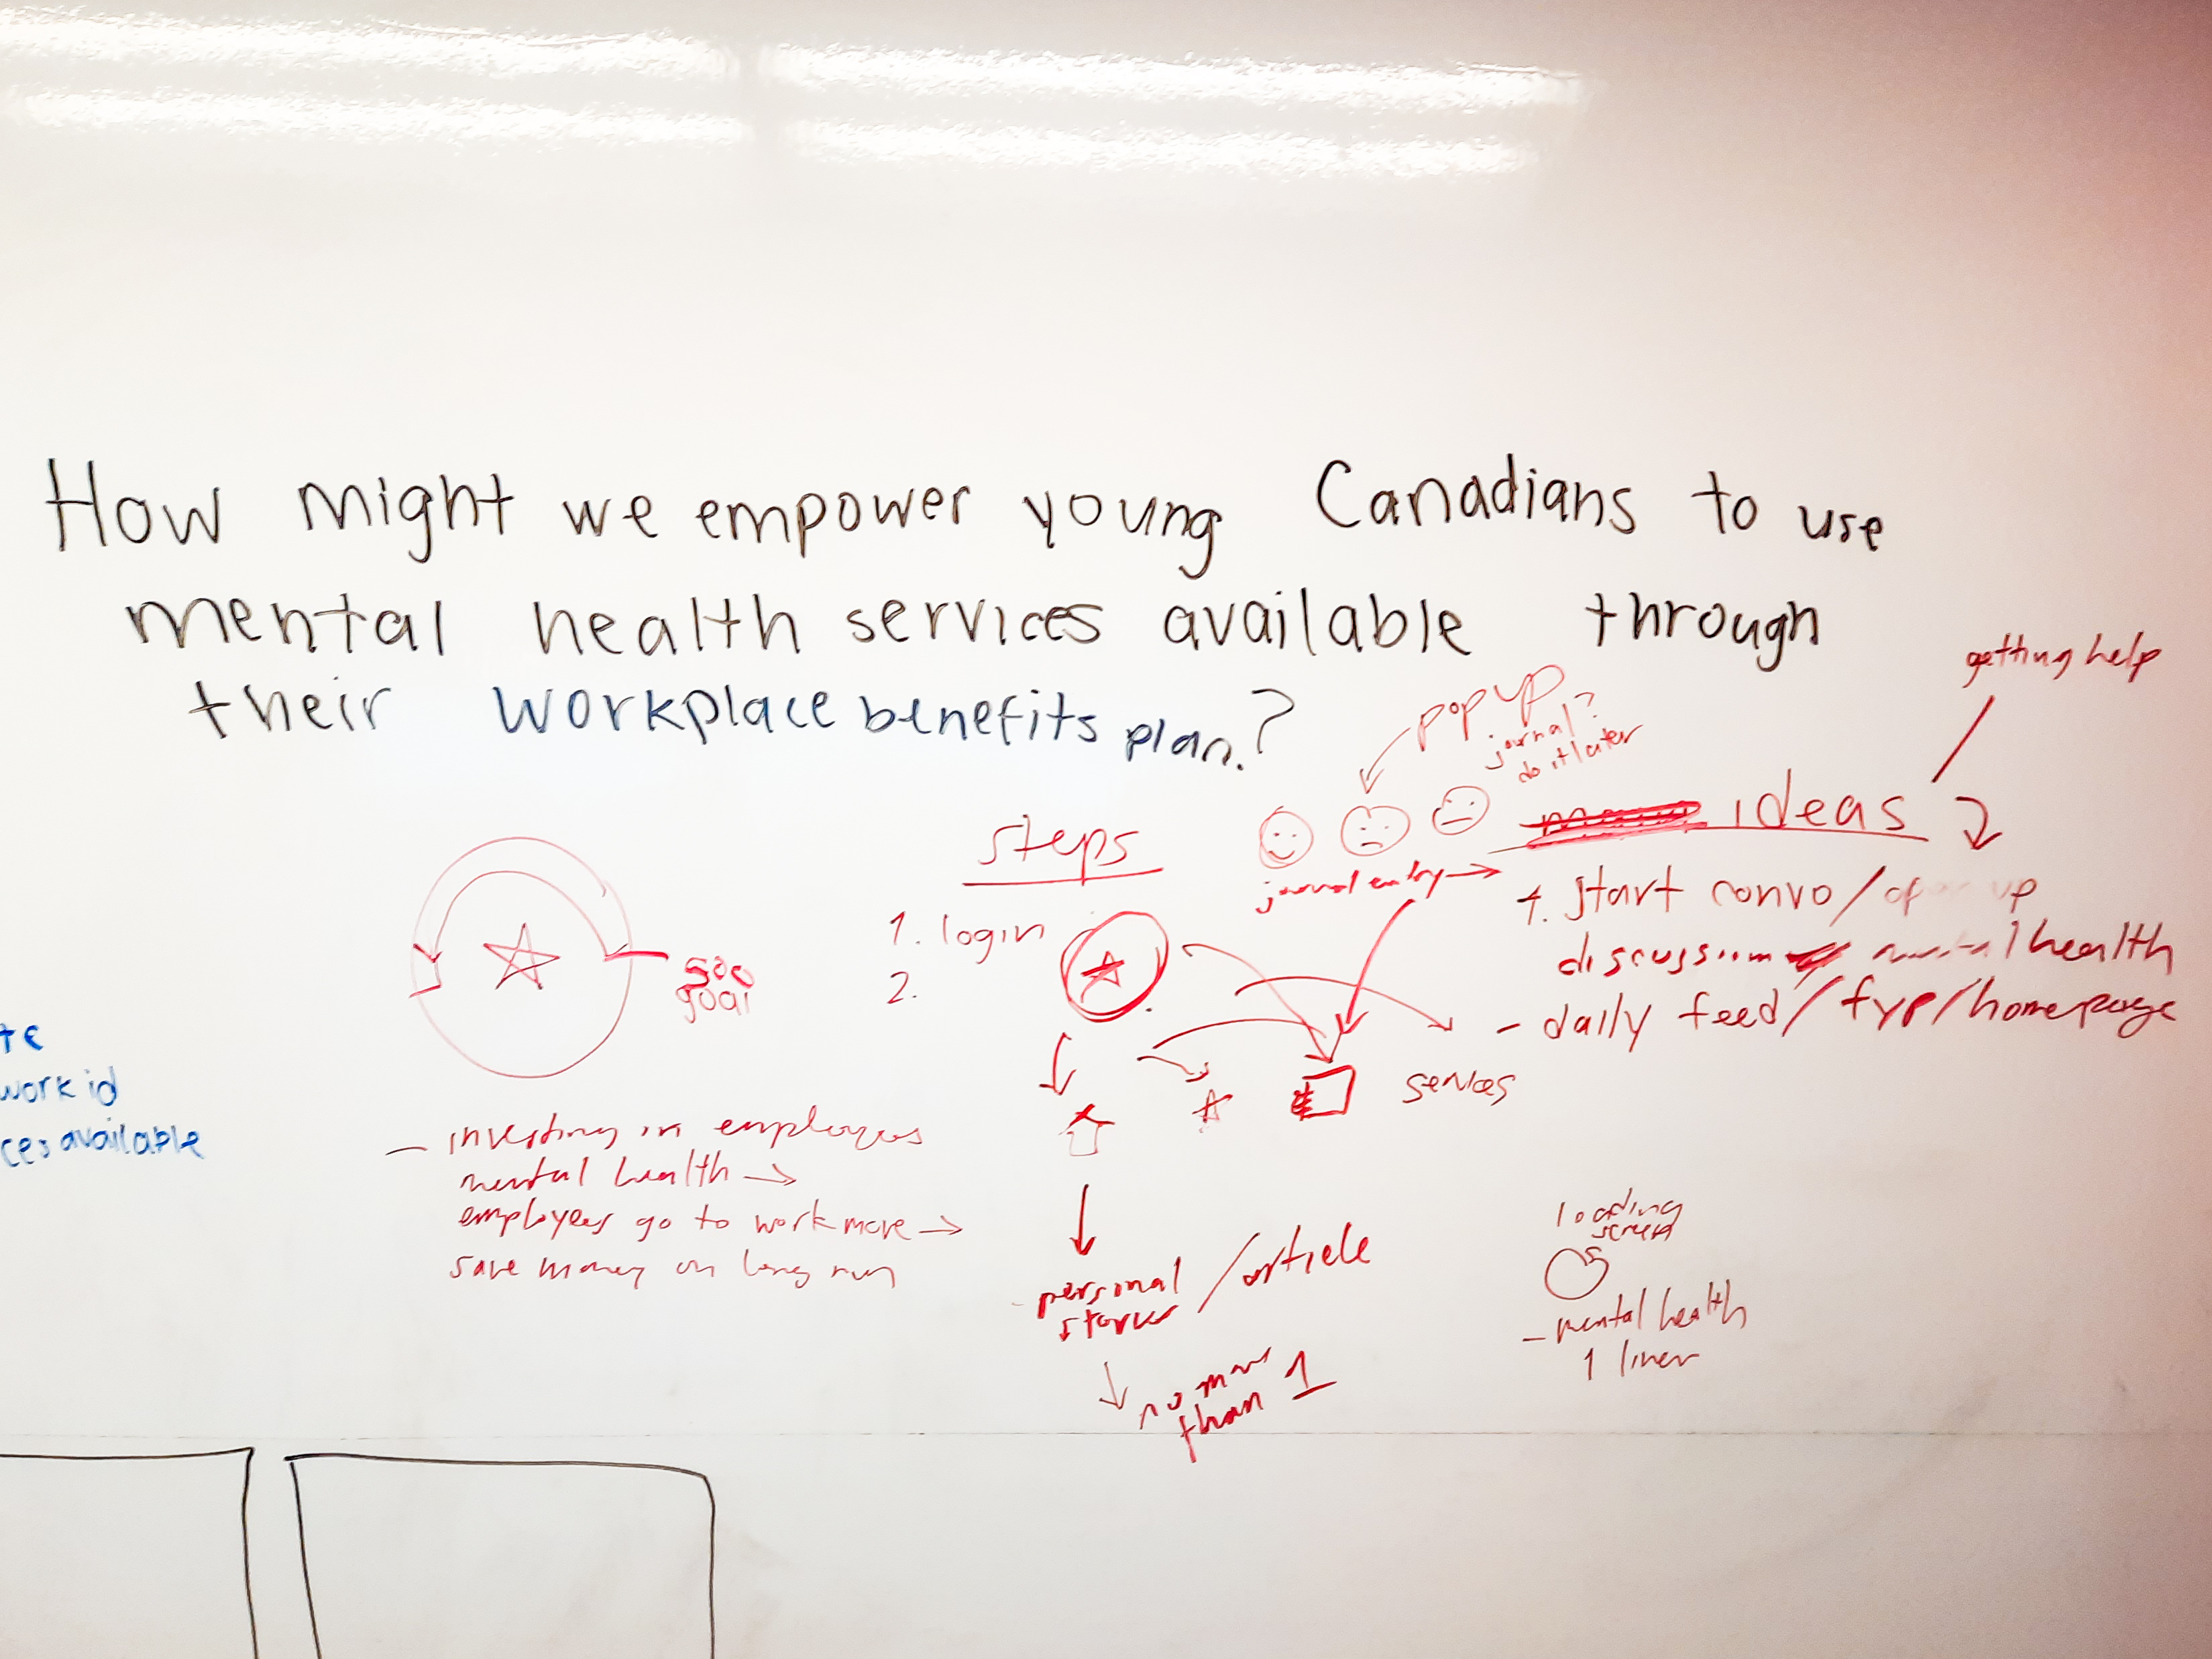 How might we empower young Canadians to use
mental health services available through
their workplace benefits plan.?
getting help
pop up
journal?
do it later
ideas
steps
journal entry
1. login
2.
start convo / up
discussion health
- daily feed / fyp / homepage
500
goal
work id
available
services
- investing in employees
mental health →
employees go to work more →
save money on long run
- personal / article
stories
no more
than 1
loading
screen
- mental health
1 liner